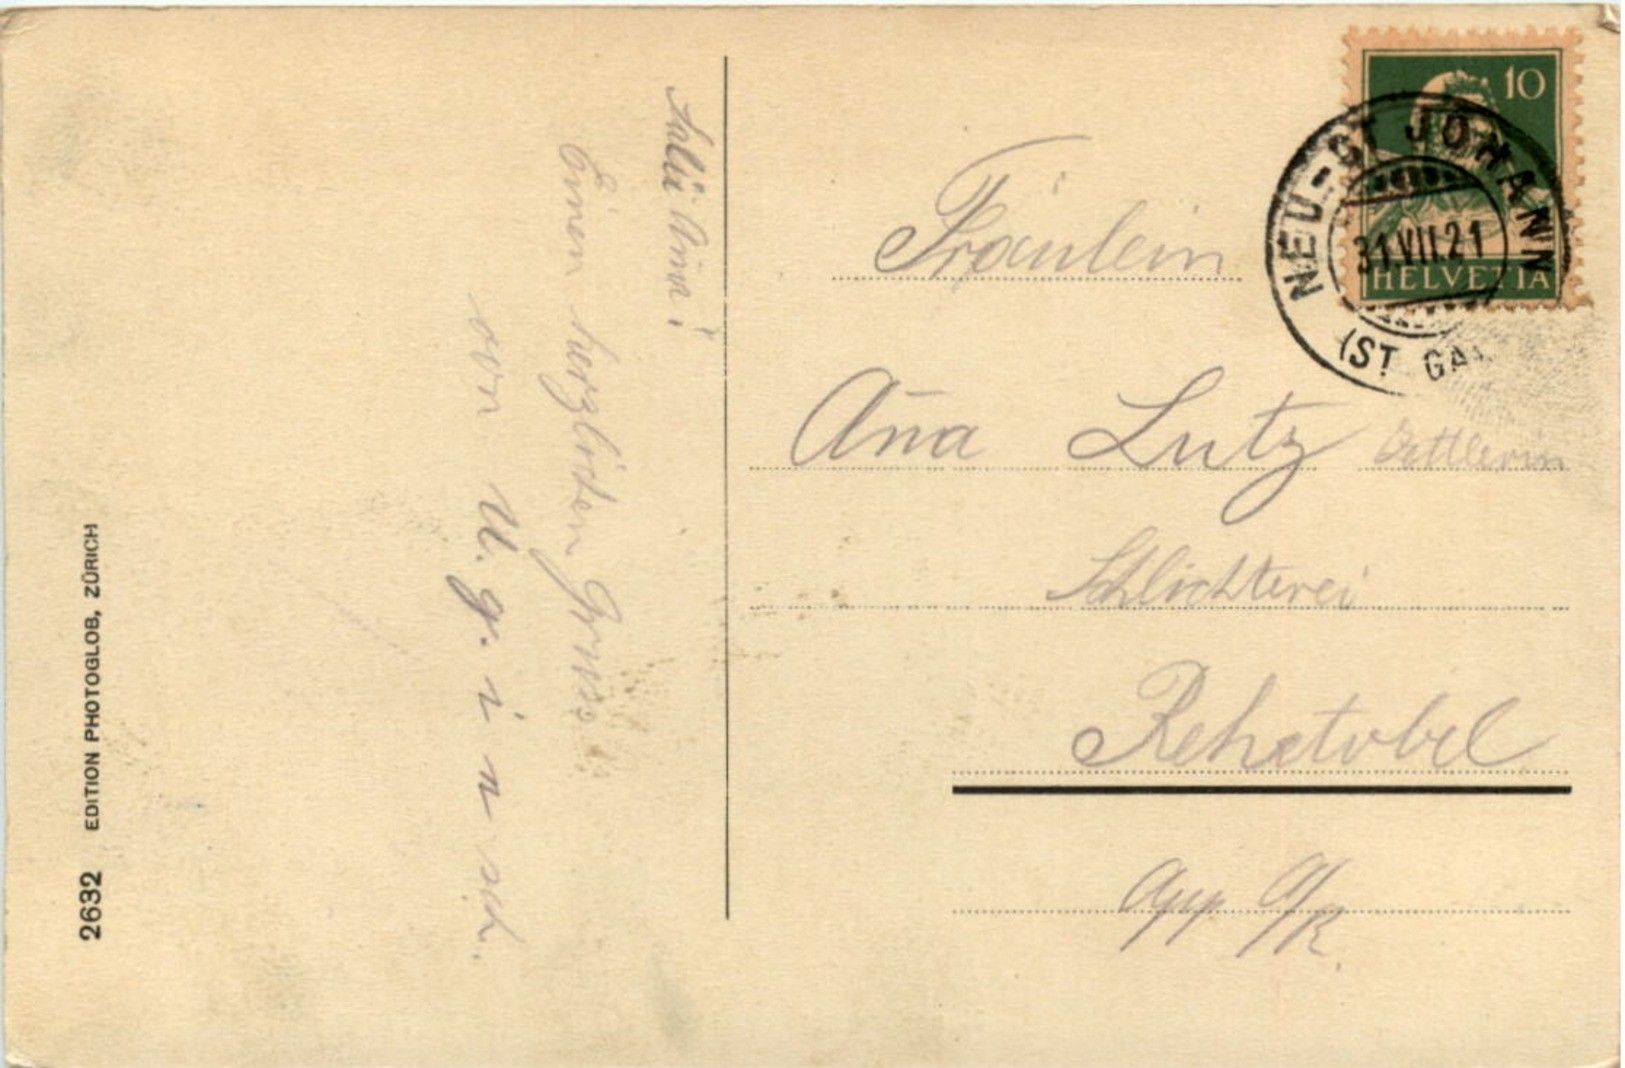 Salü Anna!
Einen herzlichen Gruss
von U. g. i. n sch.
2632 EDITION PHOTOGLOB, ZÜRICH
10
HELVETIA
NEU-ST JOHANN
31.VII.21
(ST. GA
Fräulein
Aña Lutz
Schlichterei
Rehetobel
App A/R.